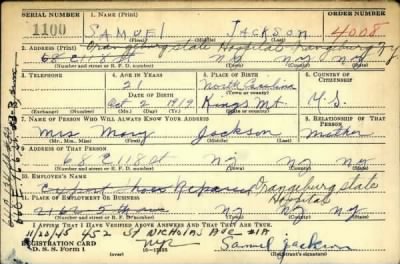 SERIAL NUMBER 1. NAME (Print) ORDER NUMBER
1100 SAMUEL JACKSON 4008
(First) (Middle) (Last)
2. ADDRESS (Print) Orangeburg State Hospital Orangeburg NY
68 E 118 St NY NY NY
(Number and street or R. F. D. number) (Town) (County) (State)
3. TELEPHONE 4. AGE IN YEARS 5. PLACE OF BIRTH 6. COUNTRY OF CITIZENSHIP
21 North Carolina
DATE OF BIRTH (Town or county)
Oct 2 1919 Kings Mt. U.S.
(Exchange) (Number) (Mo.) (Day) (Yr.) (State or country)
7. NAME OF PERSON WHO WILL ALWAYS KNOW YOUR ADDRESS 8. RELATIONSHIP OF THAT PERSON
Mrs Mary Jackson Mother
(Mr., Mrs., Miss) (First) (Middle) (Last)
9. ADDRESS OF THAT PERSON
68 E 118 St NY NY NY
(Number and street or R. F. D. number) (Town) (County) (State)
10. EMPLOYER'S NAME
Expert Shoe Repairer Orangeburg State
11. PLACE OF EMPLOYMENT OR BUSINESS Hospital
5th Ave NY NY NY
(Number and street or R. F. D. number) (Town) (County) (State)
I AFFIRM THAT I HAVE VERIFIED ABOVE ANSWERS AND THAT THEY ARE TRUE.
11/20/45 452 St NICHOLAS AVE
REGISTRATION CARD NYC Samuel Jackson
D. S. S. Form 1 (over) 16—17105 (Registrant's signature)